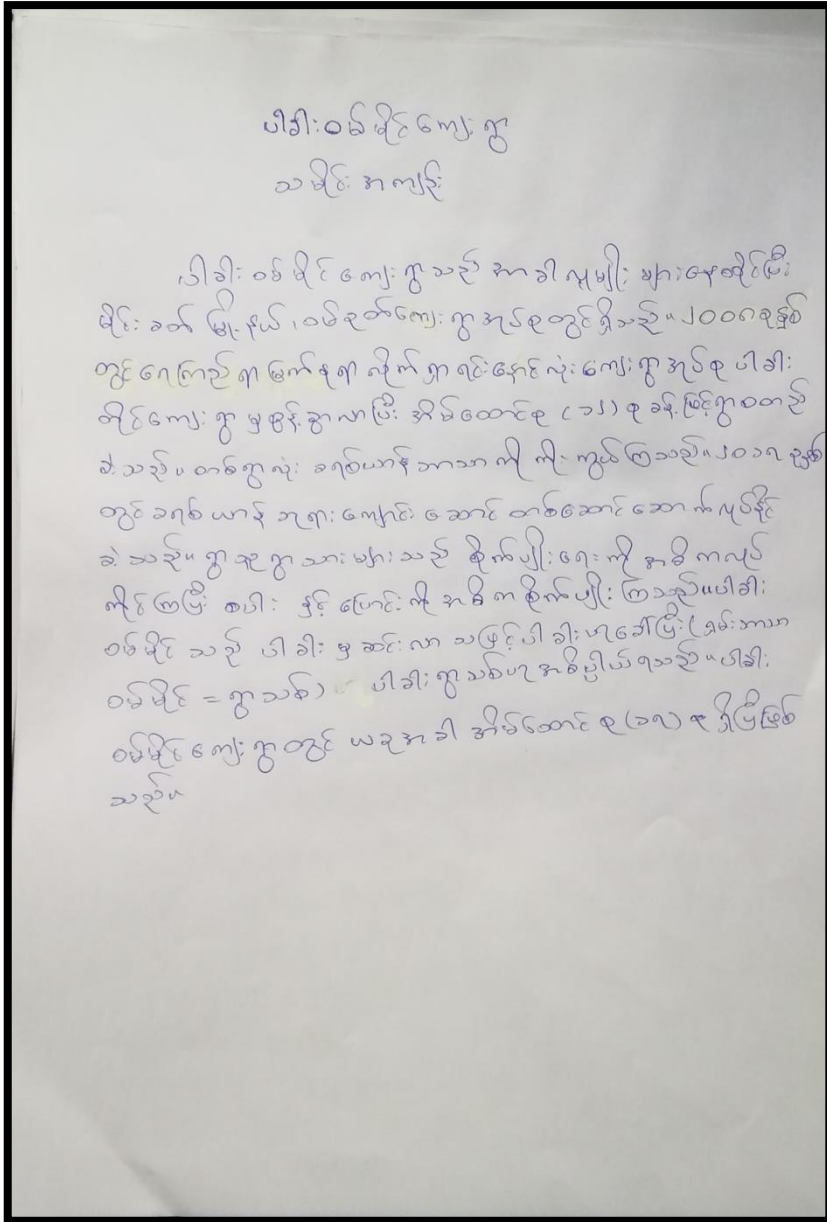 ပါခါးဝမ်မိုင်ကျေးရွာ
သမိုင်းအကျဉ်း
ပါခါးဝမ်မိုင်ကျေးရွာသည် အာခါလူမျိုး များနေထိုင်ပြီး
မိုင်းခတ်မြို့နယ်၊ ဝမ်စုတ်ကျေးရွာအုပ်စုတွင်ရှိသည်။ ၂၀၀၈ ခုနှစ်
တွင်ရေကြည်ရာ မြက်နုရာ လိုက်ရှာရင်းနောင်လုံးကျေးရွာအုပ်စု ပါခါး
တိုင်ကျေးရွာမှ စွန့်ခွာလာပြီး အိမ်ထောင်စု (၁၂) စုခန့်ဖြင့်ရွာစတည်
ခဲ့သည်။ တစ်ရွာလုံး ခရစ်ယာန်ဘာသာကို ကိုးကွယ်ကြသည်။ ၂၀၁၇ ခုနှစ်
တွင်ခရစ်ယာန် ဘုရားကျောင်းဆောင် တစ်ဆောင်ဆောက်လုပ်နိုင်
ခဲ့သည်။ ရွာသူရွာသားများသည် စိုက်ပျိုးရေးကို အဓိကလုပ်
ကိုင်ကြပြီး စပါးနှင့် ပြောင်းကို အဓိကစိုက်ပျိုးကြသည်။ ပါခါး
ဝမ်မိုင်သည် ပါခါးမှဆင်းလာသဖြင့်ပါခါးဟုခေါ်ပြီး (ရှမ်းဘာသာ
ဝမ်မိုင် = ရွာသစ်) ပါခါးရွာသစ်ဟုအဓိပ္ပါယ်ရသည်။ ပါခါး
ဝမ်မိုင်ကျေးရွာတွင် ယခုအခါ အိမ်ထောင်စု (၁၇) စုရှိပြီဖြစ်
သည်။